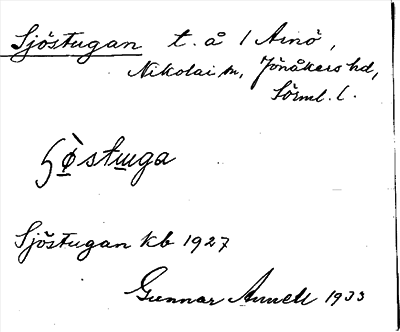 Sjöstugan t. å / Arnö,
Nikolai sn, Jönåkers hd,
Sörml. l.
Sjöstugan kb 1927
Gunnar Annell 1933